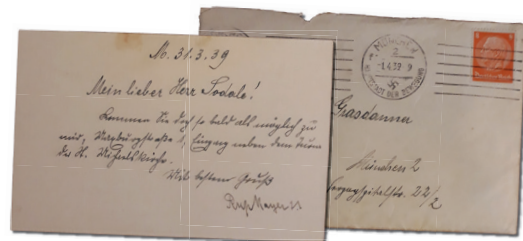 M. 31.3.39
Mein lieber Herr Sodale!
Kommen Sie doch so bald als möglich zu
mir, Maxburgstraße 1, Eingang neben dem Turm
der St. Michaelskirche.
Mit bestem Gruß
Rup. Mayer SJ
MÜNCHEN
2
-1.4.39-9
HAUPTSTADT DER BEWEGUNG
Grasdanner
München 2
Herzogspitalstr. 22/2